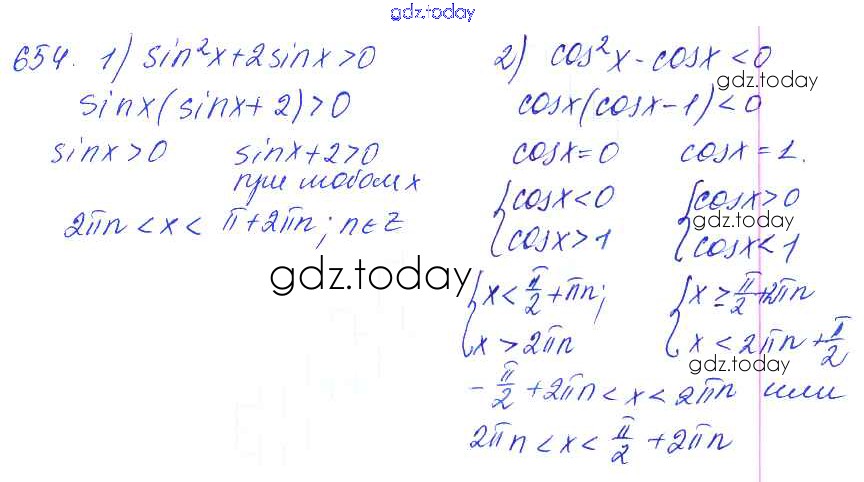 gdz.today
654. 1) sin²x+2sinx>0
sinx(sinx+2)>0
sinx>0 sinx+2>0
при любом x
2πn<x<π+2πn; n∈Z
gdz.today
2) cos²x-cosx<0
gdz.today
cosx(cosx-1)<0
cosx=0 cosx=1.
{cosx<0 {cosx>0
gdz.today
cosx>1 cosx<1
{x<π/2+πn; {x≥π/2+2πn
x>2πn x<2πn+π/2
gdz.today
-π/2+2πn<x<2πn или
2πn<x<π/2+2πn